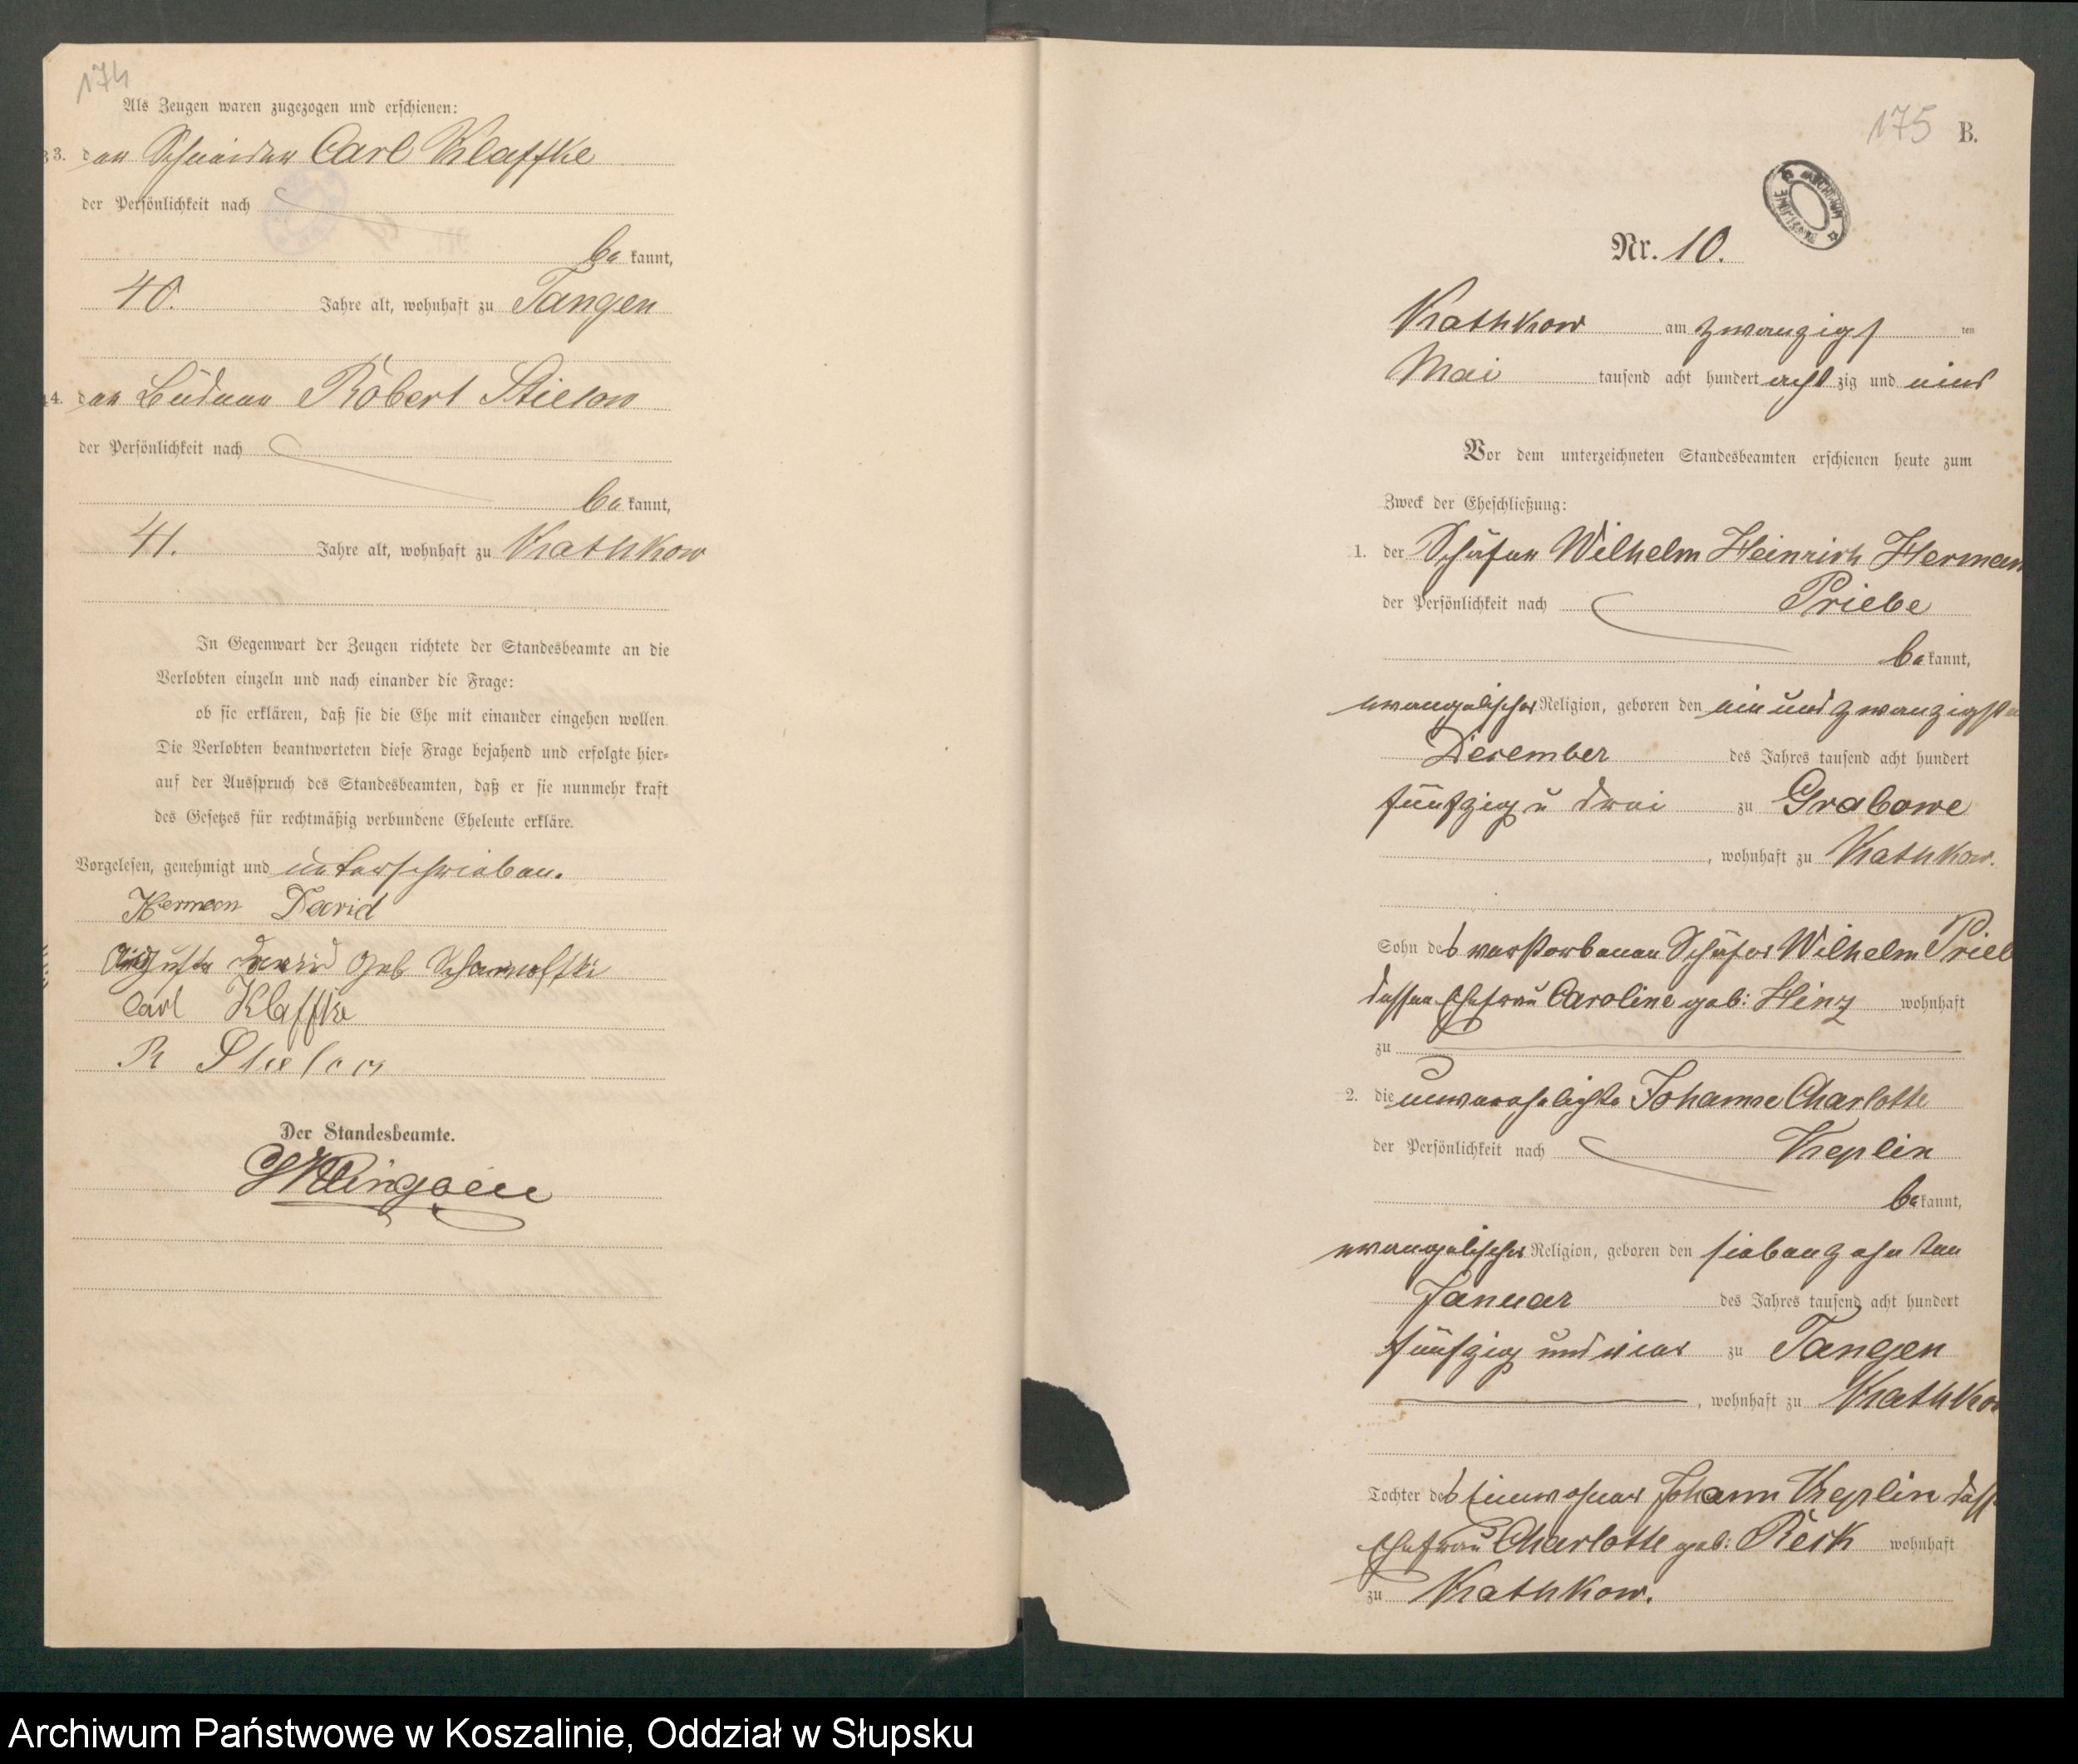 174
Als Zeugen waren zugezogen und erschienen:
3. der Schneider Carl Klaffke
der Persönlichkeit nach
be kannt,
40. Jahre alt, wohnhaft zu Tangen
4. der Büdner Robert Stielow
der Persönlichkeit nach
be kannt,
41. Jahre alt, wohnhaft zu Kathkow
In Gegenwart der Zeugen richtete der Standesbeamte an die
Verlobten einzeln und nach einander die Frage:
ob sie erklären, daß sie die Ehe mit einander eingehen wollen.
Die Verlobten beantworteten diese Frage bejahend und erfolgte hier-
auf der Ausspruch des Standesbeamten, daß er sie nunmehr kraft
des Gesetzes für rechtmäßig verbundene Eheleute erkläre.
Vorgelesen, genehmigt und unterschrieben.
Herman David
Auguste David geb
Carl Klaffke
R Stielow
Der Standesbeamte.
175 B.
Nr. 10.
Kathkow am zwanzigs ten
Mai tausend acht hundert acht zig und eins
Vor dem unterzeichneten Standesbeamten erschienen heute zum
Zweck der Eheschließung:
1. der Schäfer Wilhelm Heinrich Herman
der Persönlichkeit nach Priebe
be kannt,
evangelischer Religion, geboren den ein und zwanzigste
December des Jahres tausend acht hundert
fünfzig u drei zu Grabowe
, wohnhaft zu Kathkow.
Sohn des verstorbenen Schäfer Wilhelm Prieb
dessen Ehefrau Caroline geb: Hinz wohnhaft
zu
2. die unverehelichte Johanne Charlotte
der Persönlichkeit nach Keplin
be kannt,
evangelischer Religion, geboren den siebenzehnten
Januar des Jahres tausend acht hundert
fünfzig und vier zu Tangen
, wohnhaft zu Kathkow
Tochter des Einwohner Johann Keplin dess
Ehefrau Charlotte geb: Reck wohnhaft
zu Kathkow.
Archiwum Państwowe w Koszalinie, Oddział w Słupsku